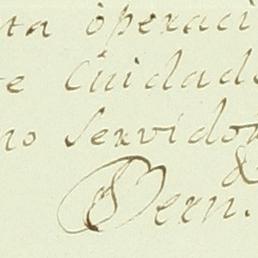 ta operaci
te Cuidado
no Servidor
&
Bern.